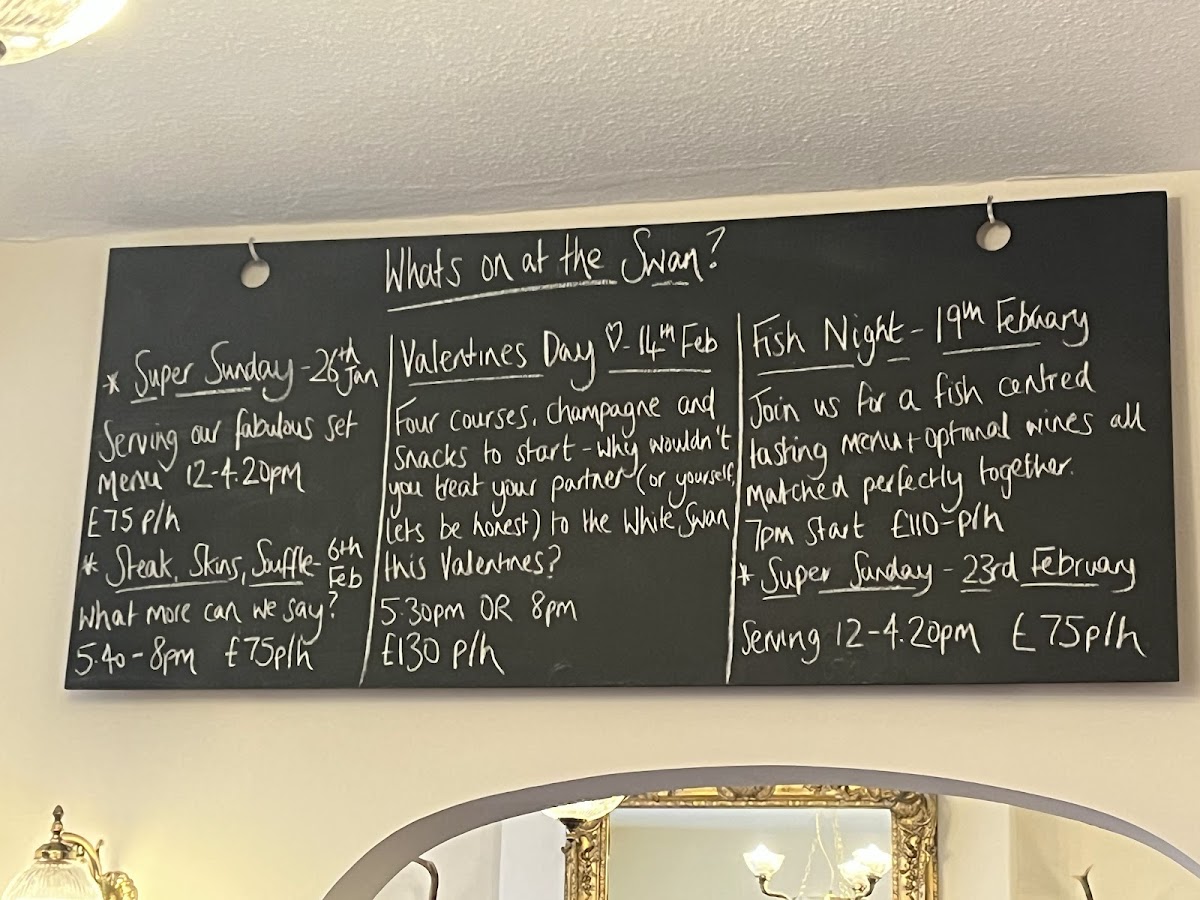 Whats on at the Swan?
* Super Sunday - 26th Jan
Serving our fabulous set
Menu 12-4.20pm
£75 p/h
* Steak, Skins, Souffle - 6th Feb
What more can we say?
5.40 - 8pm £75p/h
Valentines Day ♡ - 14th Feb
Four courses, champagne and
snacks to start - why wouldn't
you treat your partner (or yourself,
lets be honest) to the White Swan
this Valentines?
5.30pm OR 8pm
£130 p/h
Fish Night - 19th February
Join us for a fish centred
tasting menu + optional wines all
matched perfectly together.
7pm Start £110-p/h
* Super Sunday - 23rd February
Serving 12-4.20pm £75p/h